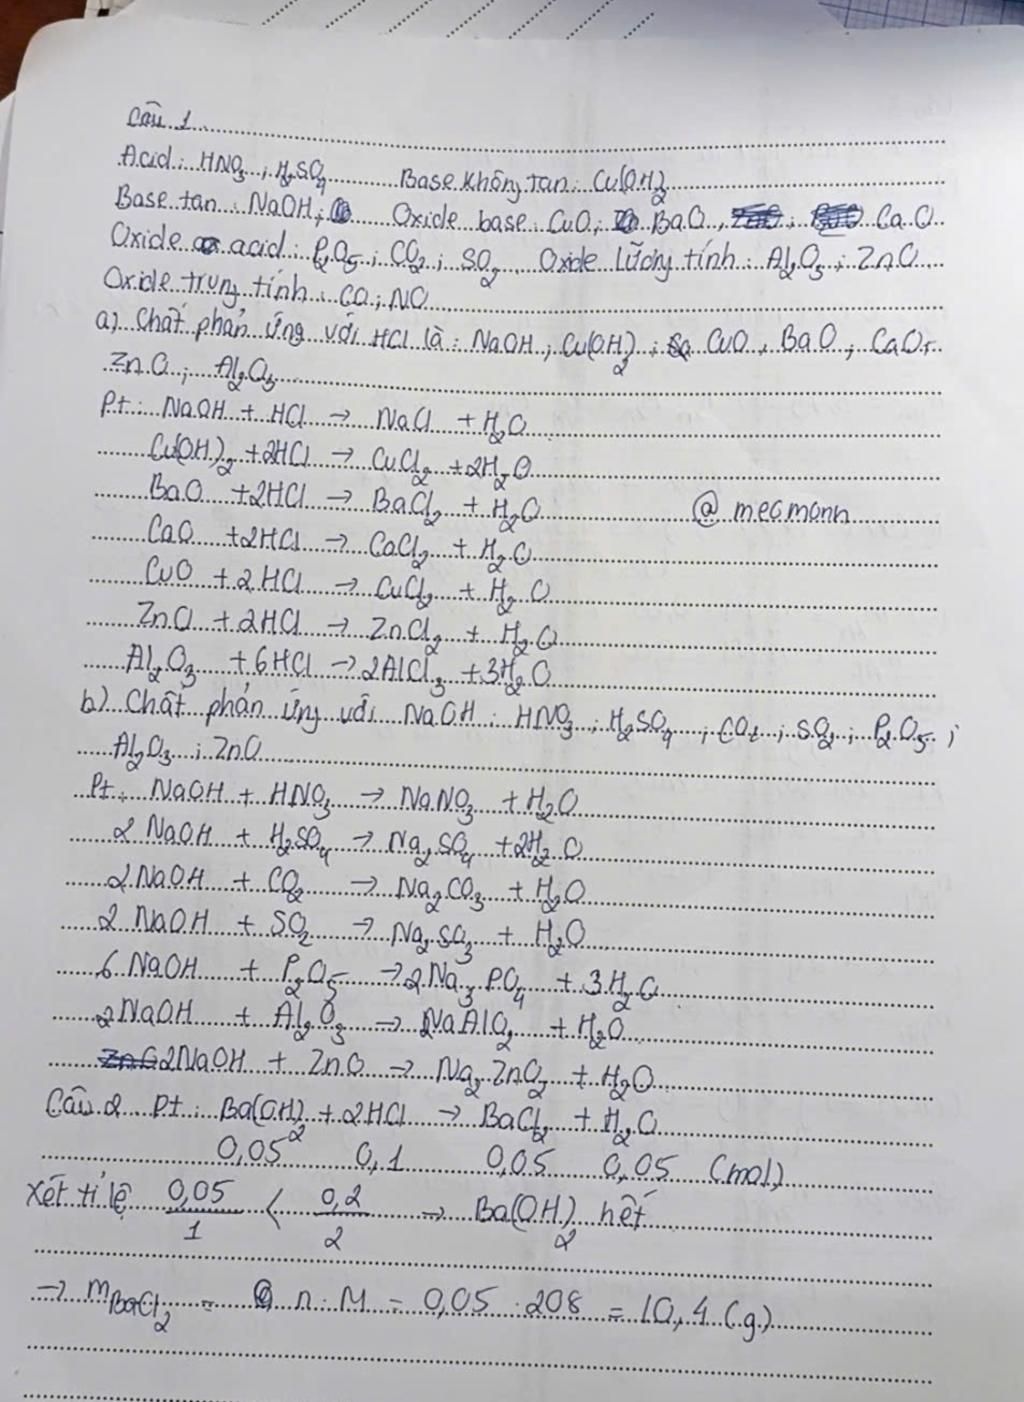 Câu 1
Acid: HNO3; H2SO4 Base không tan: Cu(OH)2
Base tan: NaOH; Oxide base: CuO; BaO, CaO
Oxide acid: P2O5; CO2; SO2 Oxide lưỡng tính: Al2O3; ZnO
Oxide trung tính: CO; NO
a) Chất phản ứng với HCl là: NaOH; Cu(OH)2; CuO, BaO; CaO,
ZnO; Al2O3
Pt: NaOH + HCl → NaCl + H2O
Cu(OH)2 + 2HCl → CuCl2 + 2H2O
BaO + 2HCl → BaCl2 + H2O @ mecmonh
CaO + 2HCl → CaCl2 + H2O
CuO + 2HCl → CuCl2 + H2O
ZnO + 2HCl → ZnCl2 + H2O
Al2O3 + 6HCl → 2AlCl3 + 3H2O
b) Chất phản ứng với NaOH: HNO3; H2SO4; CO2; SO2; P2O5;
Al2O3; ZnO
Pt: NaOH + HNO3 → NaNO3 + H2O
2NaOH + H2SO4 → Na2SO4 + 2H2O
2NaOH + CO2 → Na2CO3 + H2O
2NaOH + SO2 → Na2SO3 + H2O
6NaOH + P2O5 → 2Na3PO4 + 3H2O
2NaOH + Al2O3 → 2NaAlO2 + H2O
2NaOH + ZnO → Na2ZnO2 + H2O
Câu 2 Pt: Ba(OH)2 + 2HCl → BaCl2 + H2O
0,05 0,1 0,05 0,05 (mol)
Xét tỉ lệ 0,05/1 < 0,2/2 → Ba(OH)2 hết
→ mBaCl2 = n.M = 0,05.208 = 10,4 (g)